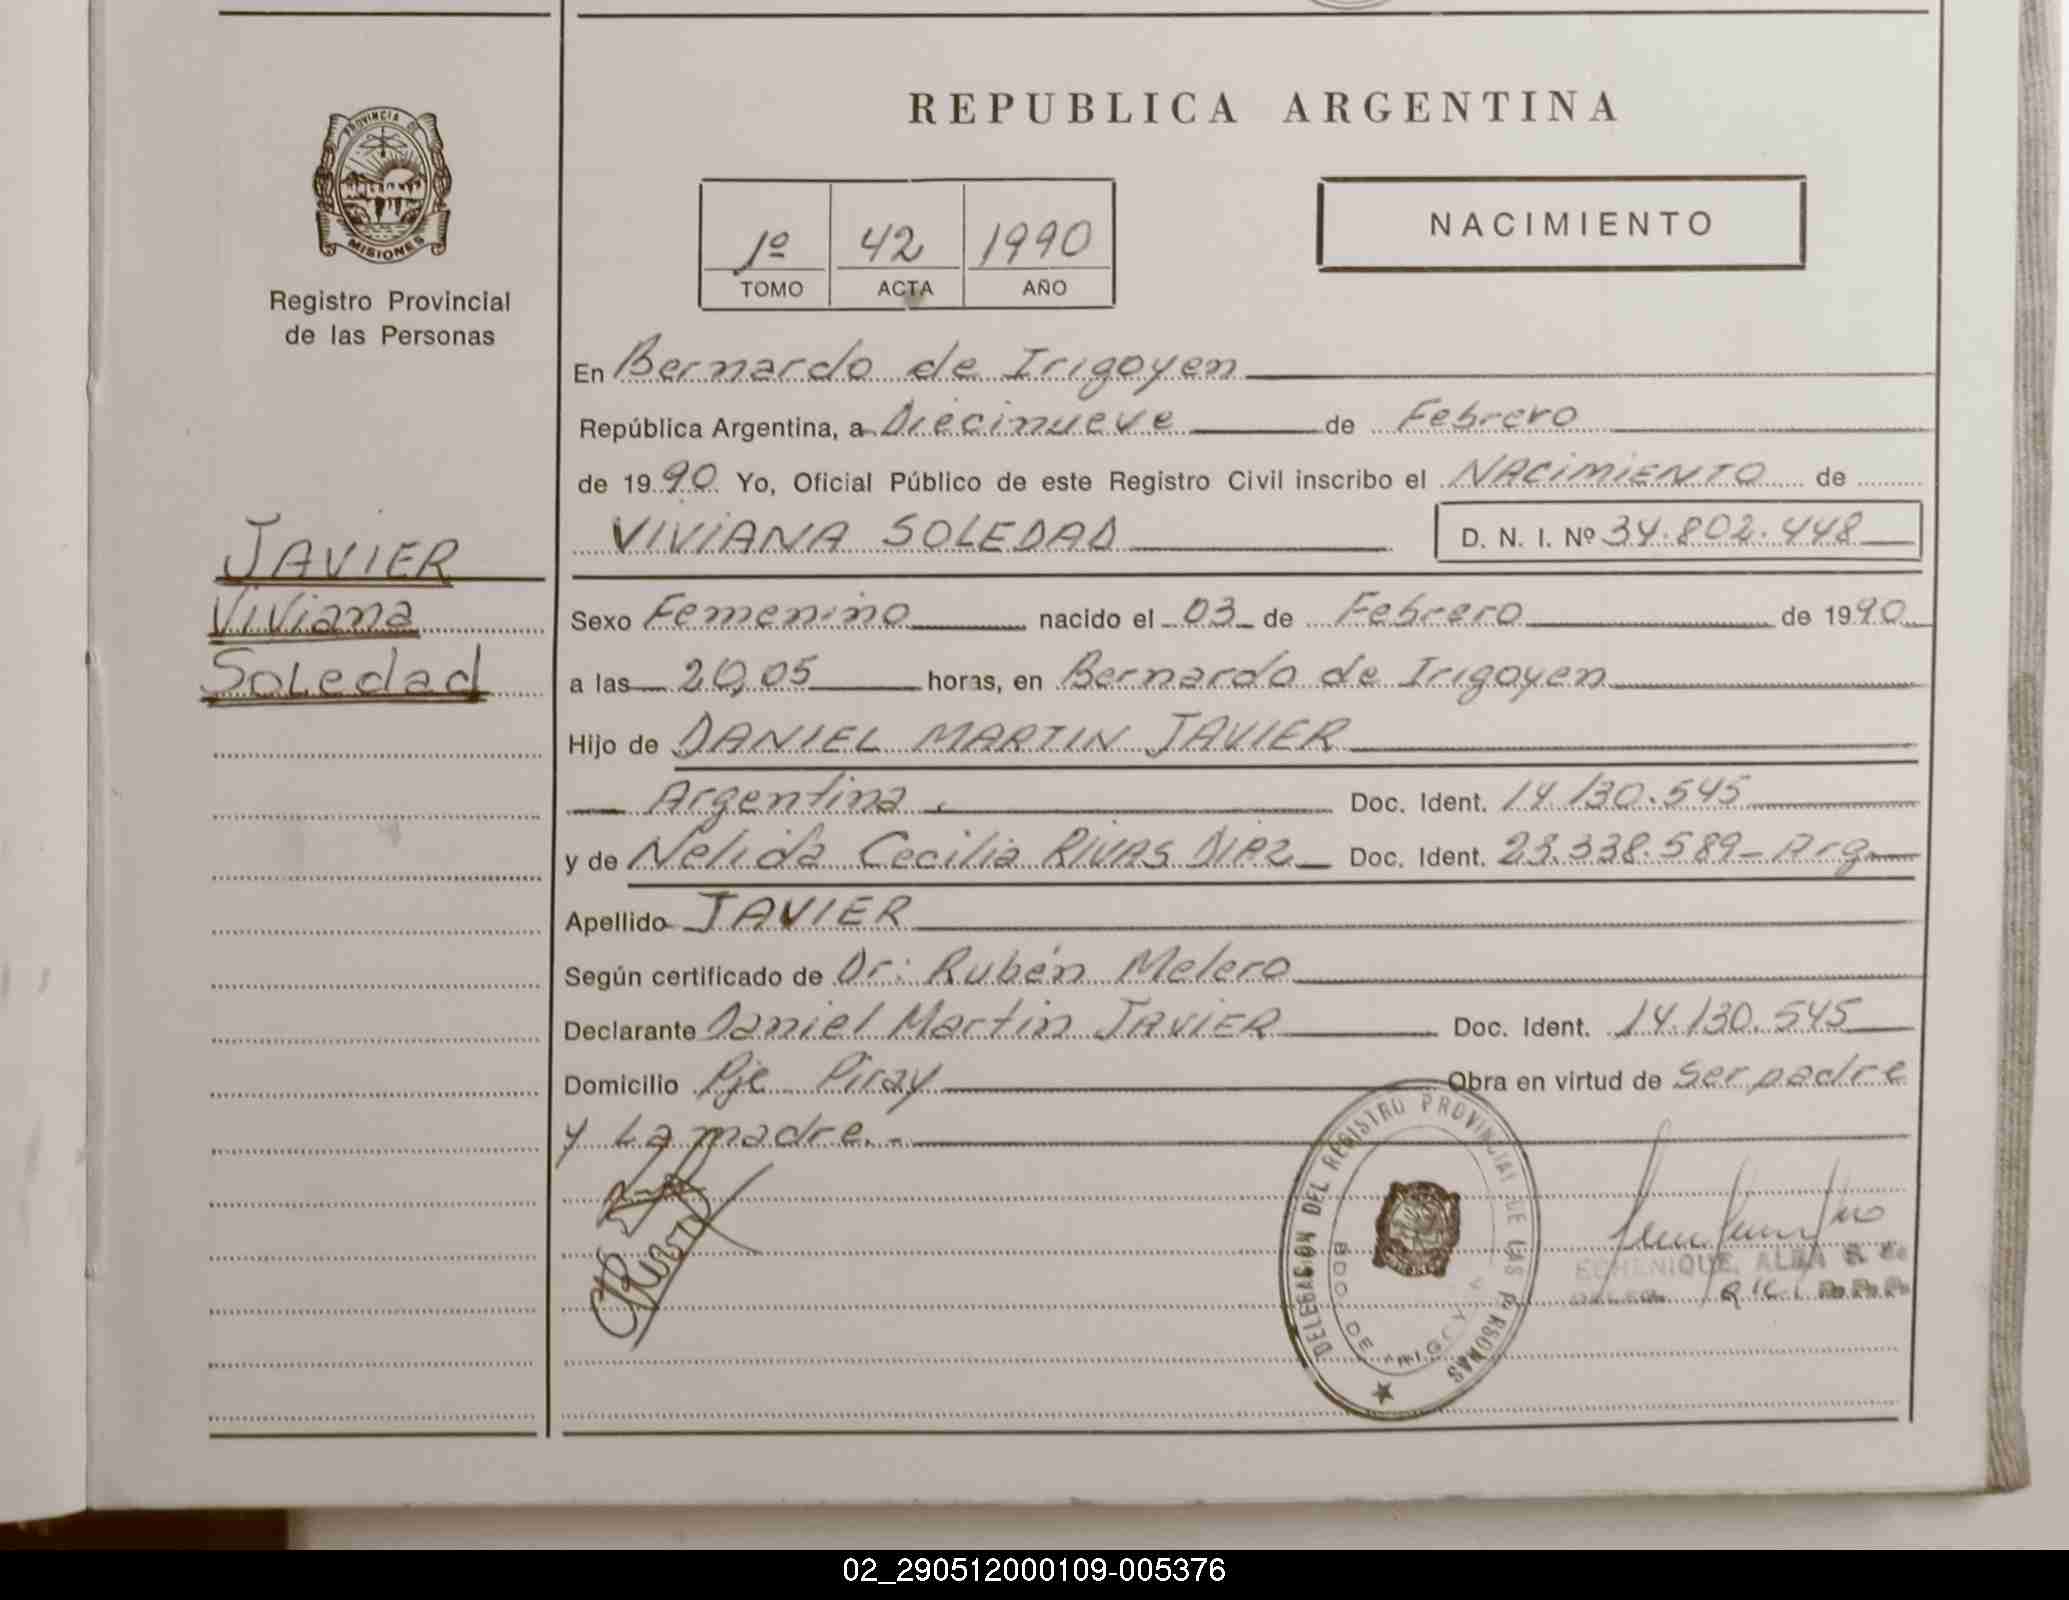 REPUBLICA ARGENTINA
PROVINCIA DE MISIONES
Registro Provincial
de las Personas
1º 42 1990
TOMO ACTA AÑO
NACIMIENTO
En Bernardo de Irigoyen
República Argentina, a Diecinueve de Febrero
de 1990 Yo, Oficial Público de este Registro Civil inscribo el NACIMIENTO de
VIVIANA SOLEDAD D. N. I. Nº 34.802.448
JAVIER
Viviana
Soledad
Sexo Femenino nacido el 03 de Febrero de 1990
a las 20,05 horas, en Bernardo de Irigoyen
Hijo de DANIEL MARTIN JAVIER
Argentina. Doc. Ident. 14.130.545
y de Nelida Cecilia RIVAS DIAZ Doc. Ident. 23.338.589- Arg
Apellido JAVIER
Según certificado de Dr: Rubén Melero
Declarante Daniel Martin JAVIER Doc. Ident. 14.130.545
Domicilio Pje Piray Obra en virtud de Ser padre
y La madre.-
DELEGACION DEL REGISTRO PROVINCIAL DE LAS PERSONAS
BDO DE
ECHENIQUE, ALBA
02_290512000109-005376